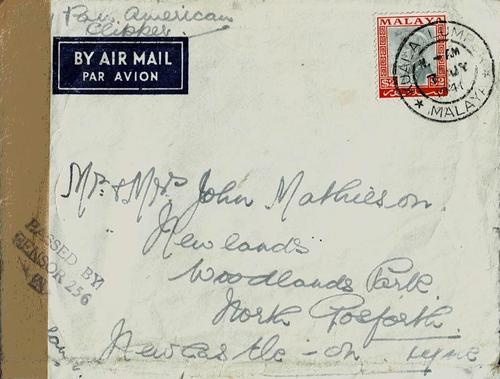 Pan American
Clipper.
BY AIR MAIL
PAR AVION
MALAYA
$2 $2
KUALA LUMPUR
MALAYA
Mr. & Mrs John Mathieson.
Newlands
Woodlands Park
North Gosforth.
Newcastle-on-Tyne
PASSED BY
CENSOR 256